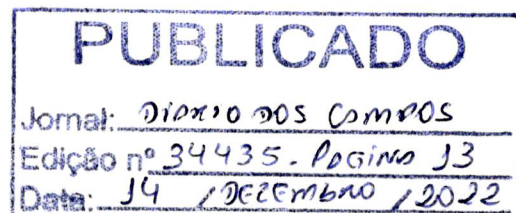 PUBLICADO
Jornal: DIARIO DOS CAMPOS
Edição nº 34435. PAGINA 13
Data: 14 / DEZEMBRO / 2022